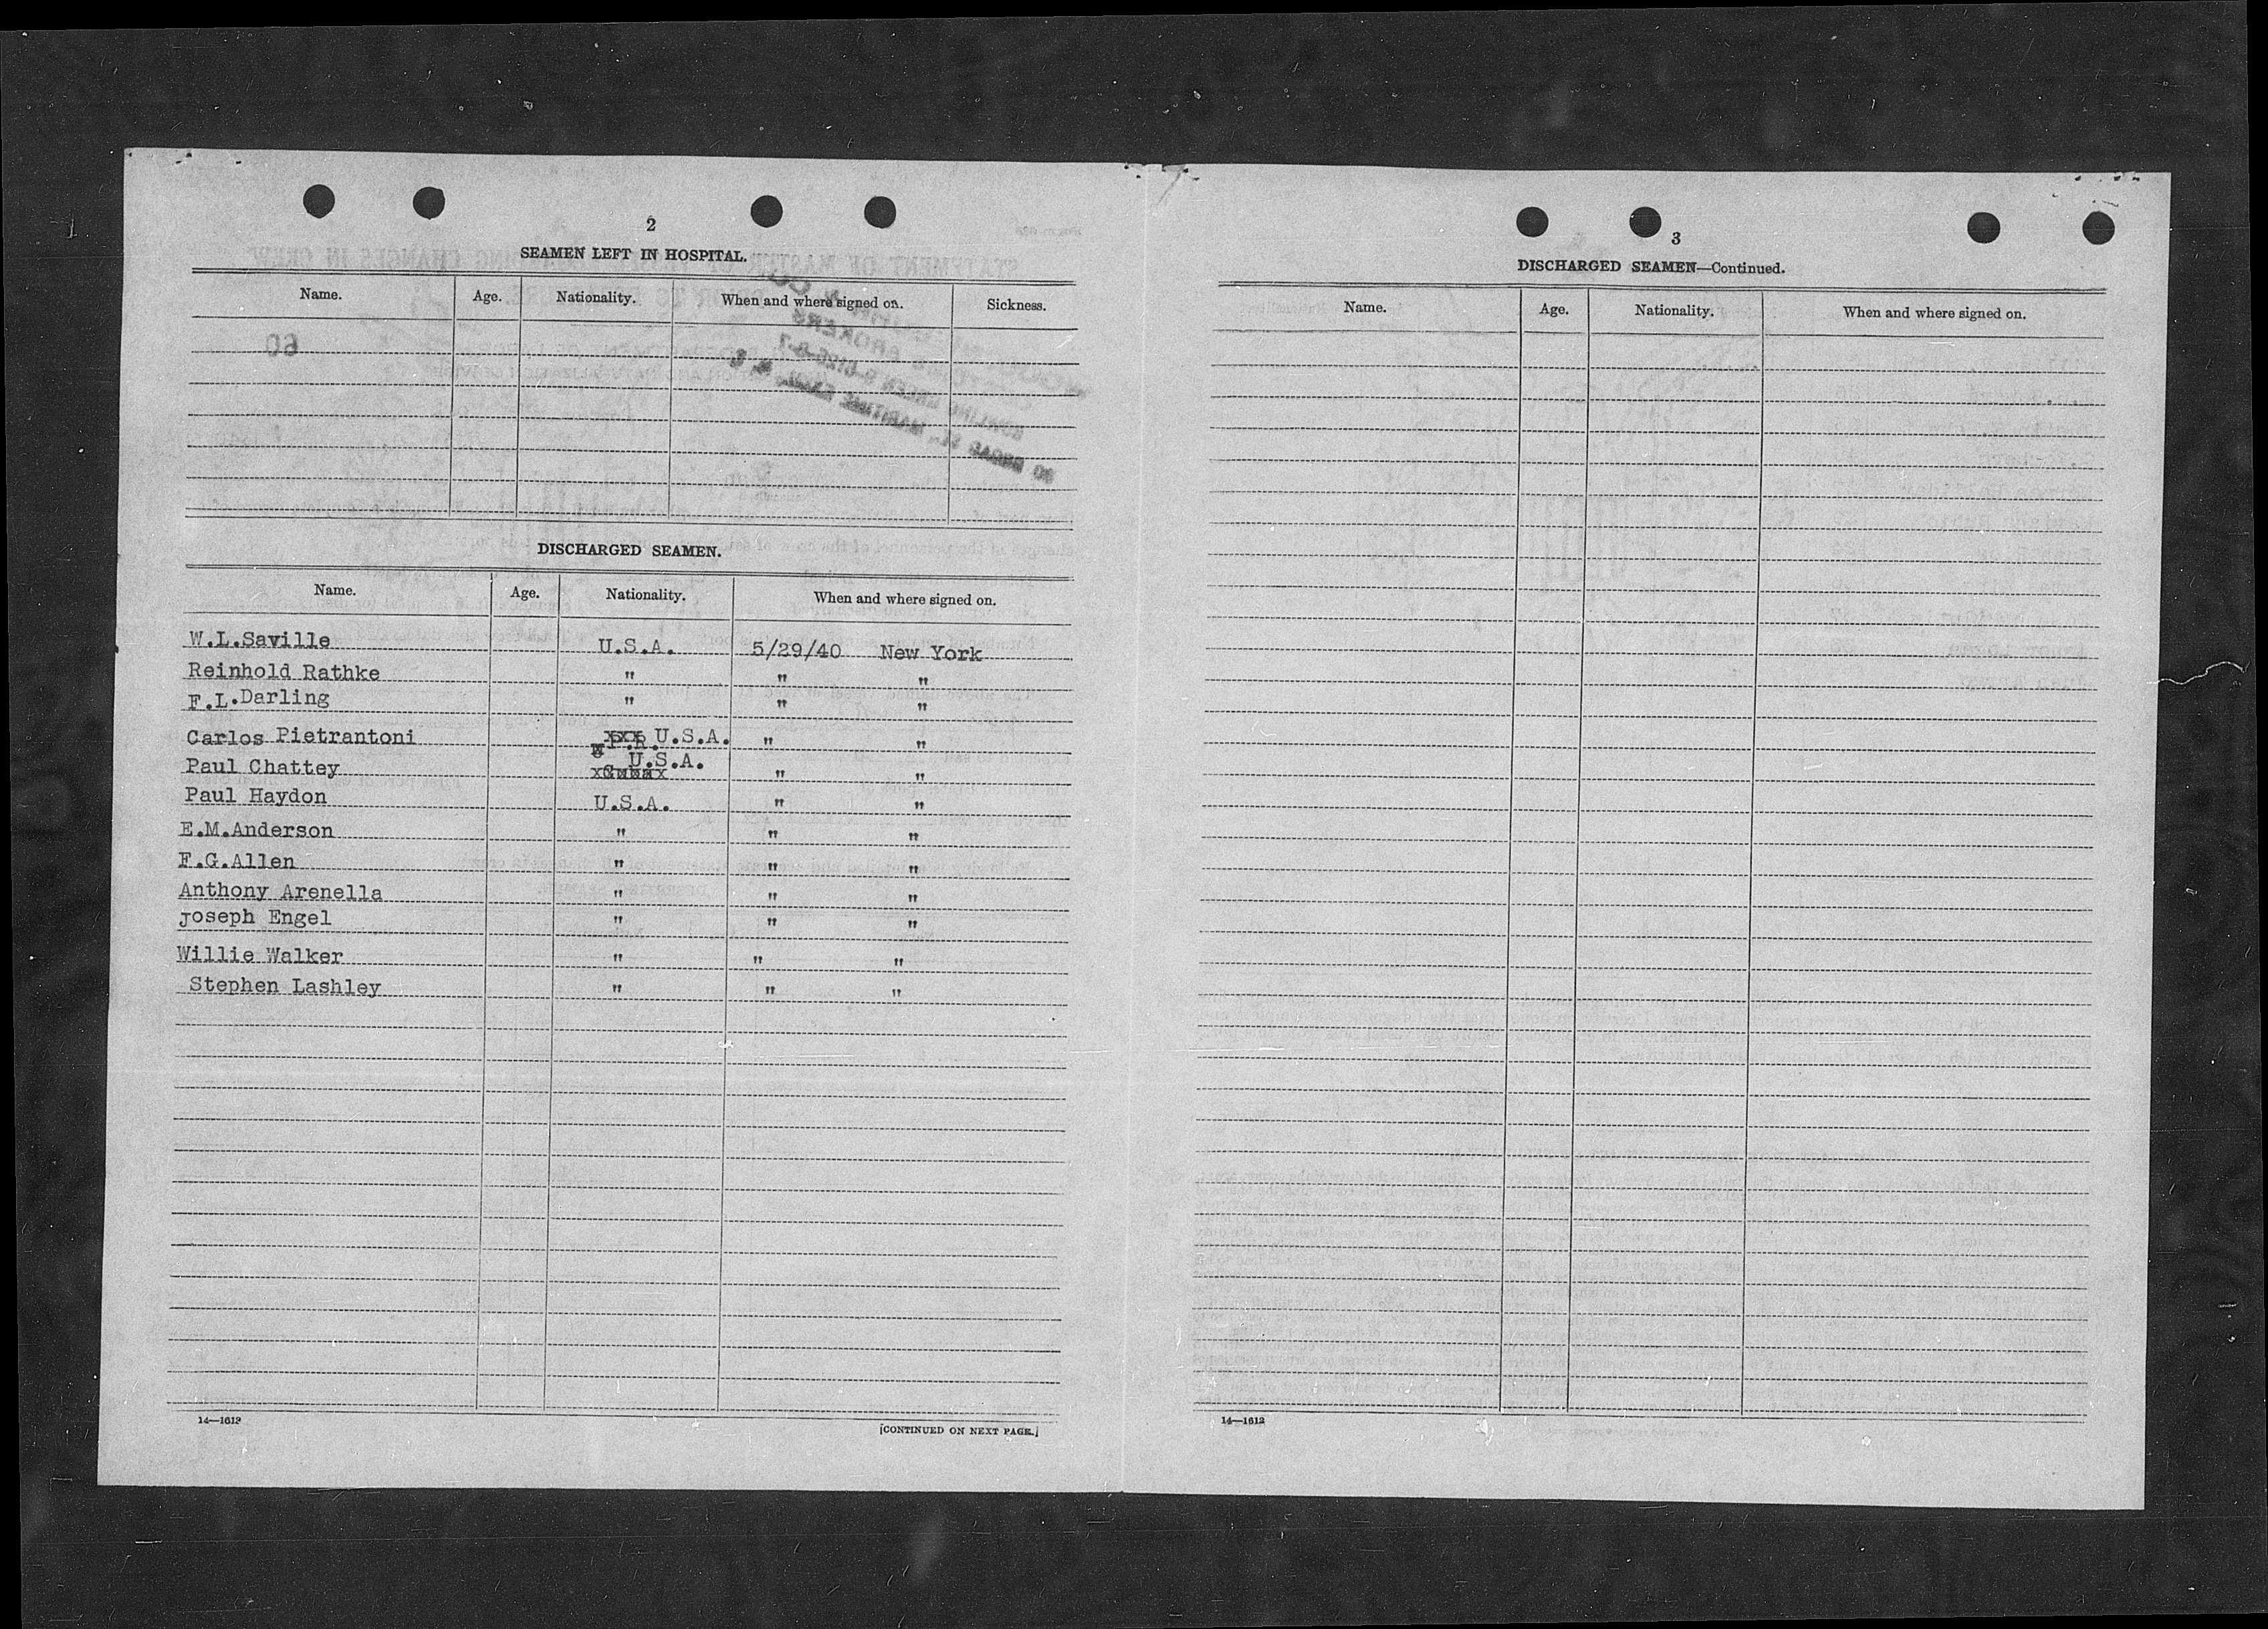 2
SEAMEN LEFT IN HOSPITAL.
Name. Age. Nationality. When and where signed on. Sickness.
DISCHARGED SEAMEN.
Name. Age. Nationality. When and where signed on.
W.L.Saville U.S.A. 5/29/40 New York
Reinhold Rathke " " "
F.L.Darling " " "
Carlos Pietrantoni P.R. U.S.A. " "
Paul Chattey U.S.A. " "
Paul Haydon U.S.A. " "
E.M.Anderson " " "
F.G.Allen " " "
Anthony Arenella " " "
Joseph Engel " " "
Willie Walker " " "
Stephen Lashley " " "
14—1613
[CONTINUED ON NEXT PAGE.]
3
DISCHARGED SEAMEN—Continued.
Name. Age. Nationality. When and where signed on.
14—1613